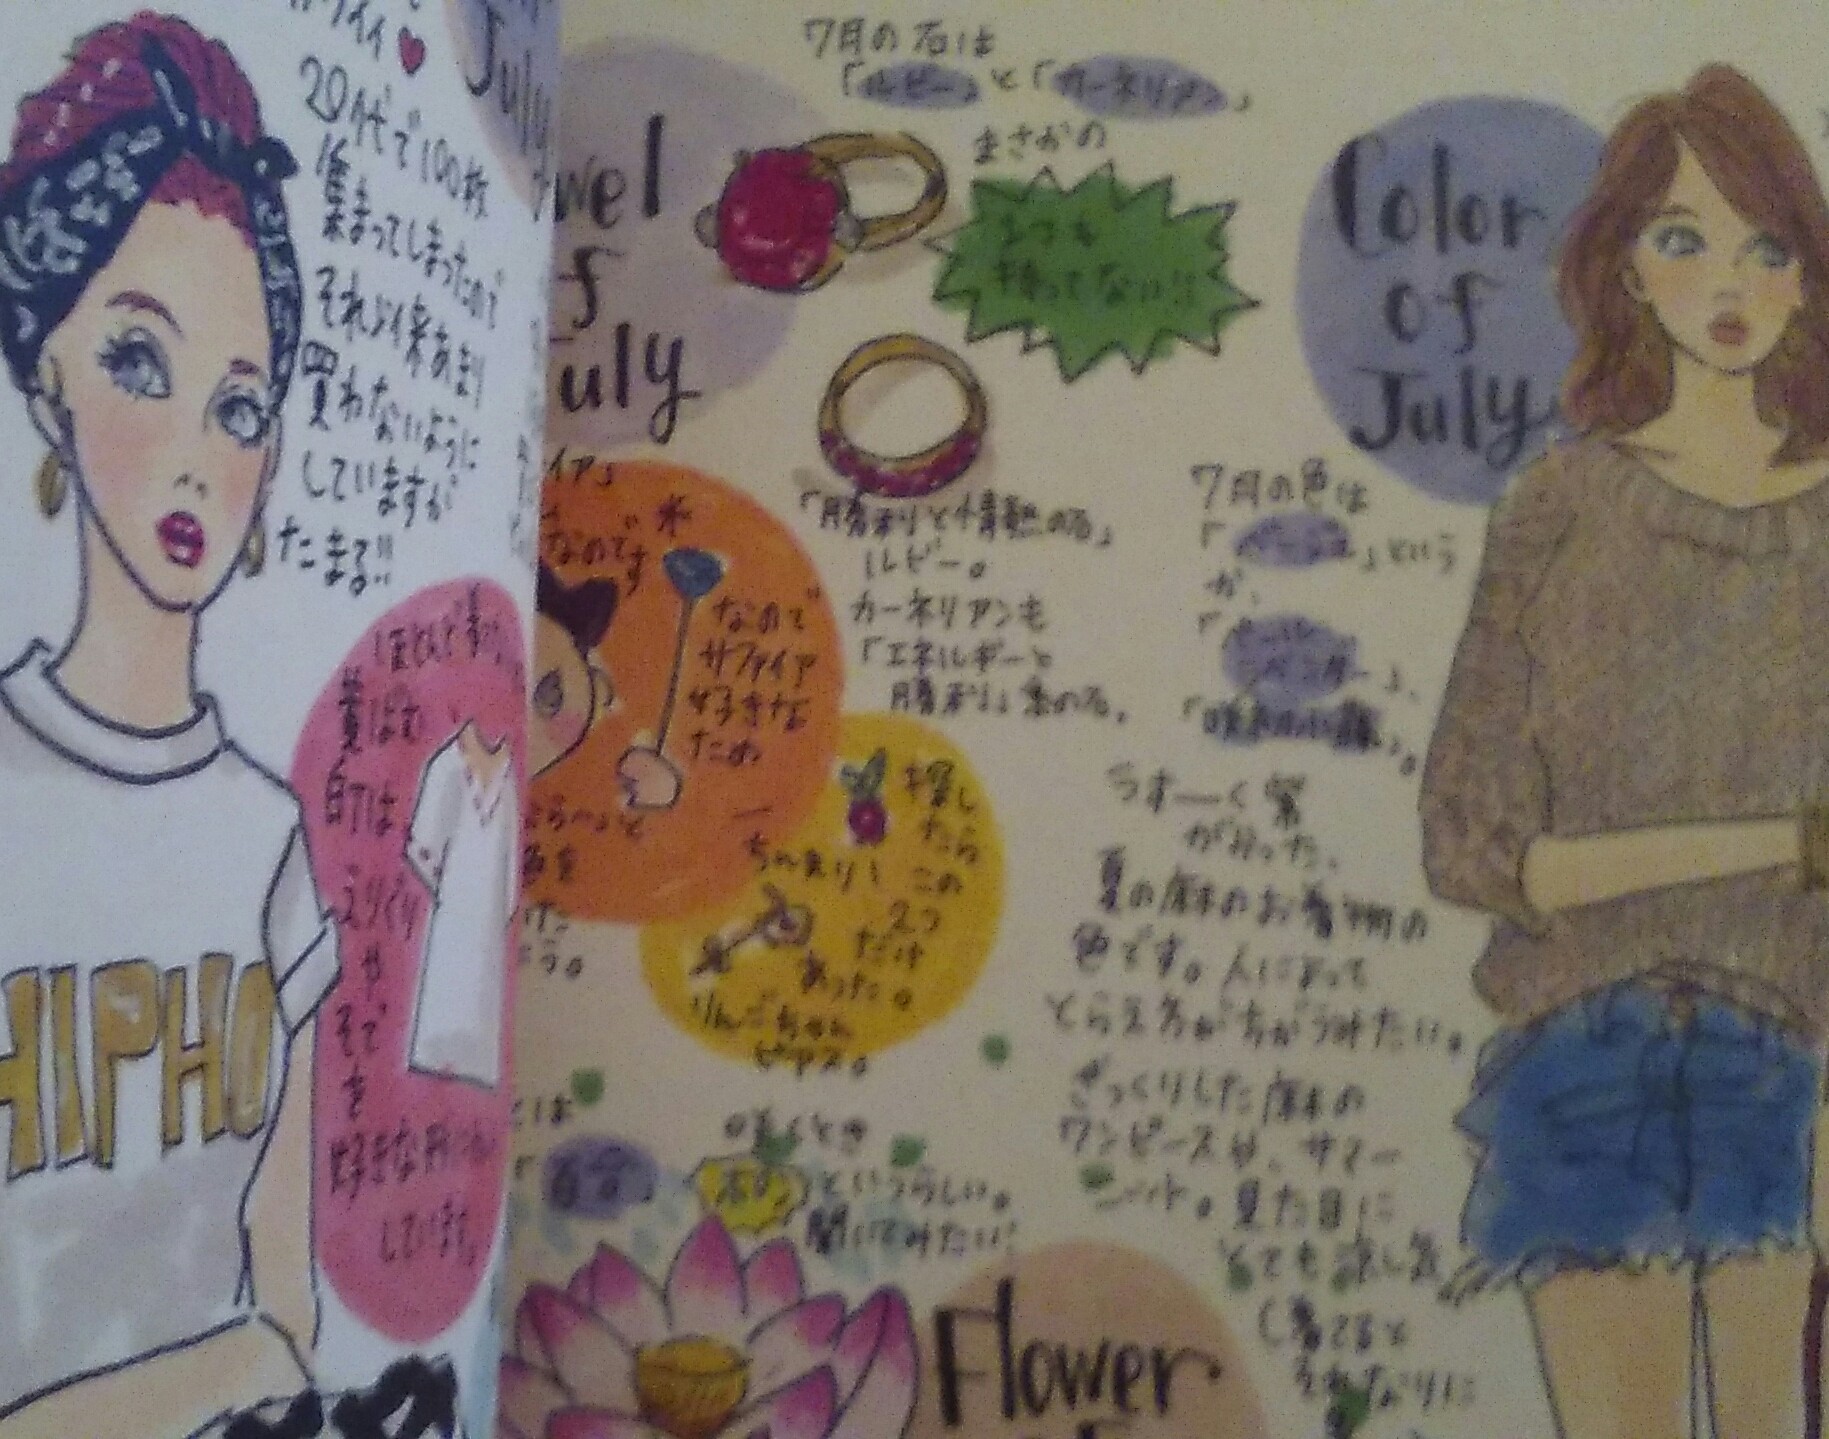 カワイイ♥
20代で100枚
集まってしまったので
それ以来あまり
買わないように
していますが
たまる!!
ほとんどまっ
黄ばむ
前は
えりぐり
や
そで
を
好きな形に
しています。
HIPHO
July
wel
f
uly
7月の石は
「ルビー」と「カーネリアン」
まさかの
2つも
持ってない!!
イア」
なのです
なので
サファイア
好きな
ため
「勝利と情熱の石」
ルビー。
カーネリアンも
「エネルギーと
勝利」の石。
探し
たら
ちんまり
この
2つ
だけ
あった。
りんごちゃん
ピアス。
Color
of
July
7月の色は
「ベージュ」という
か、
うすーく紫
がかった、
夏の麻のお着物の
色です。人によって
とらえ方がちがうみたい。
ざっくりした麻の
ワンピースや、サマー
ニット。見た目に
とても涼し気
し着てると
それなりに
咲くとき
「ポン」というらしい。
聞いてみたい!
Flower